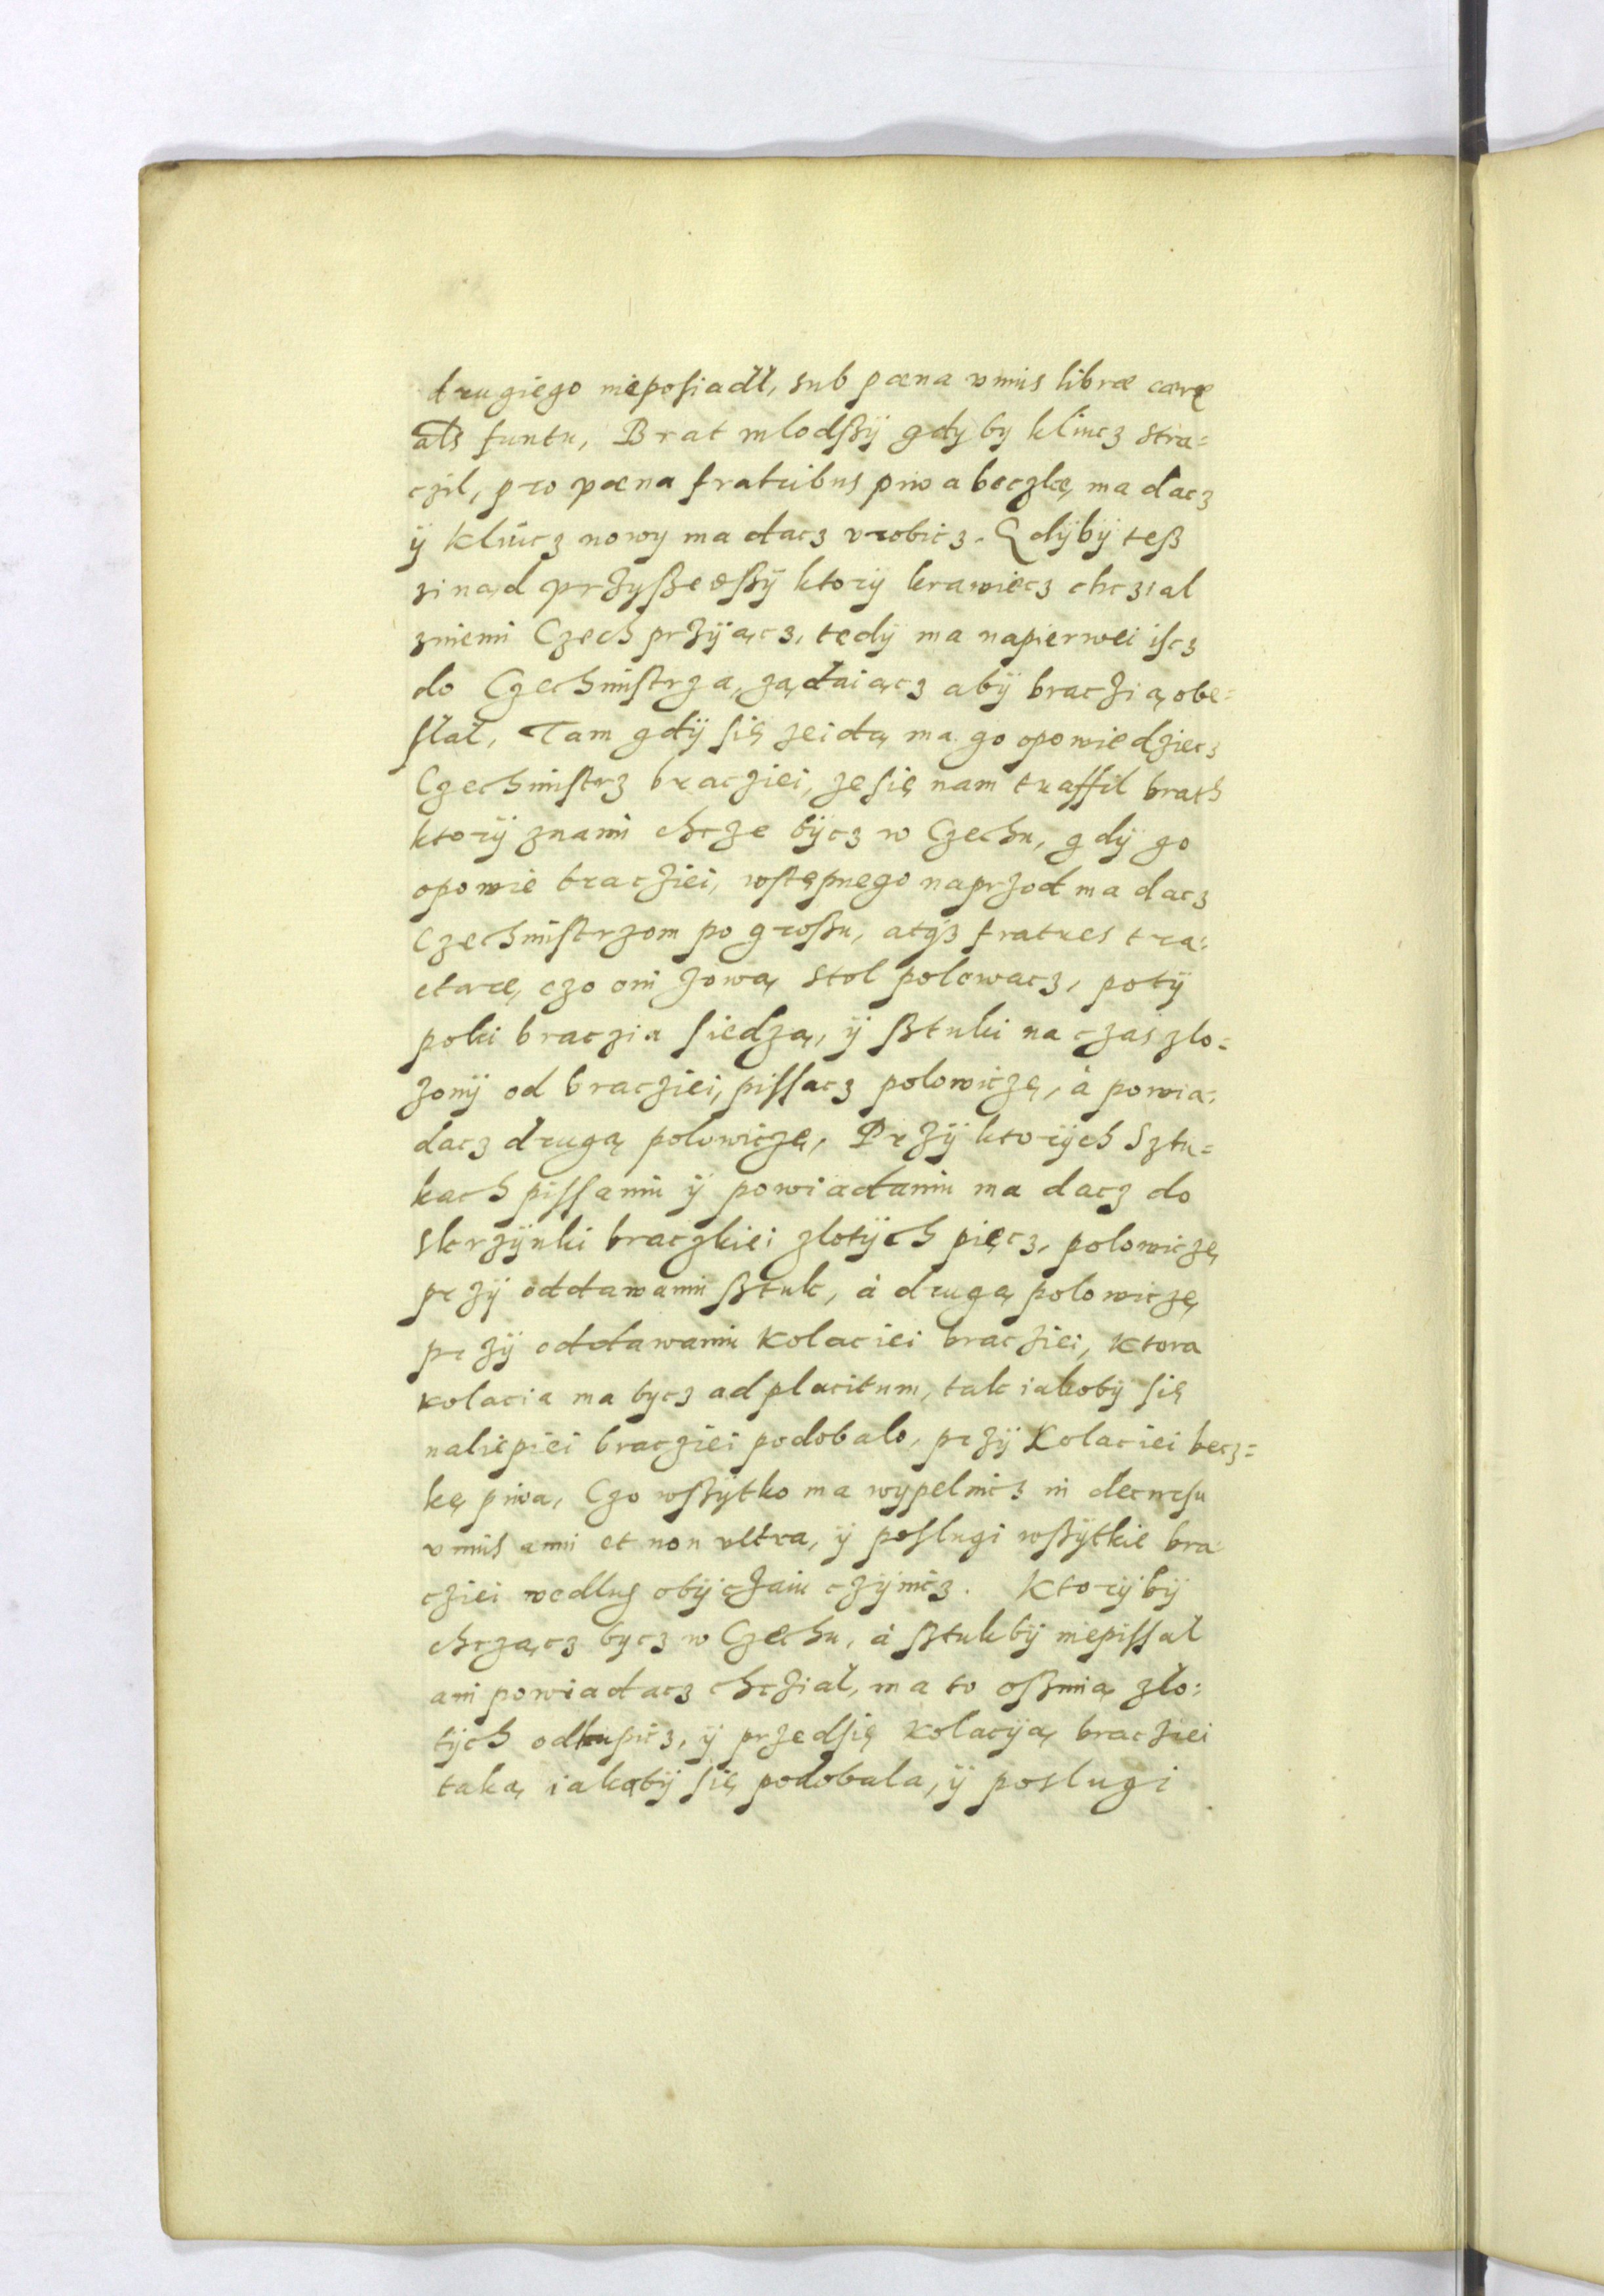 drugiego nieposiadł, sub pæna vnius libræ ceræ
als funtu, Brat mlodßÿ gdyby kliucz stra=
czil, pro pæna fratribus piwa beczkę ma dacz
ÿ kliucz nowy ma dacz vrobicz. Gdÿbÿ teß
zinąd przyßedßÿ ktorÿ krawiecz chczial
zniemi Czech przÿącz, tedÿ ma napierwei iscz
do Czechmistrza, ządaiącz abÿ braczią obe=
słał, Tam gdÿ się zeidą ma go opowiedziecz
Czechmistrz bracziei, ze się nam traffil brath
ktorÿ znami chcze bÿcz w Czechu, gdÿ go
opowie bracziei, wstępnego naprzod ma dacz
Czechmistrzom po großu, atÿz fratres tra=
ctare, czo oni zową stol polowacz, potÿ
poki braczia siedzą, ÿ ßtuki na czas zlo=
zonÿ od bracziei, pissacz polowiczę, à powia=
dacz drugą polowiczę, Przÿ ktorÿch Sztu=
kach pissaniu ÿ powiadaniu ma dacz do
skrzÿnki braczkiei zlotÿch pięcz, polowiczę
przÿ oddawaniu ßtuk, à drugą polowiczę
przÿ oddawaniu kolaciei bracziei, ktora
kolacia ma bycz ad placitum, tak iakobÿ się
naliepiei bracziei podobalo, przÿ Kolaciei becz=
kę piwa, Czo wßÿtko ma wypelnicz in decursu
vnius anni et non vltra, ÿ poslugi wßÿtkie bra
cziei wedlug obÿczaiu czÿnicz. Ktorÿbÿ
chcząc bycz w Czechu, à ßtukbÿ niepissał
ani powiadacz chcział, ma to oßmią zło=
tÿch odkupicz, ÿ przedsię kolacÿą bracziei
taką iakobÿ się podobala, ÿ poslugi